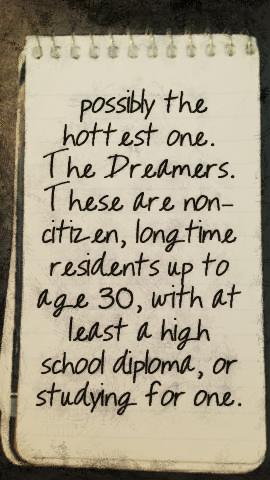 possibly the
hottest one.
The Dreamers.
These are non-
citizen, longtime
residents up to
age 30, with at
least a high
school diploma, or
studying for one.